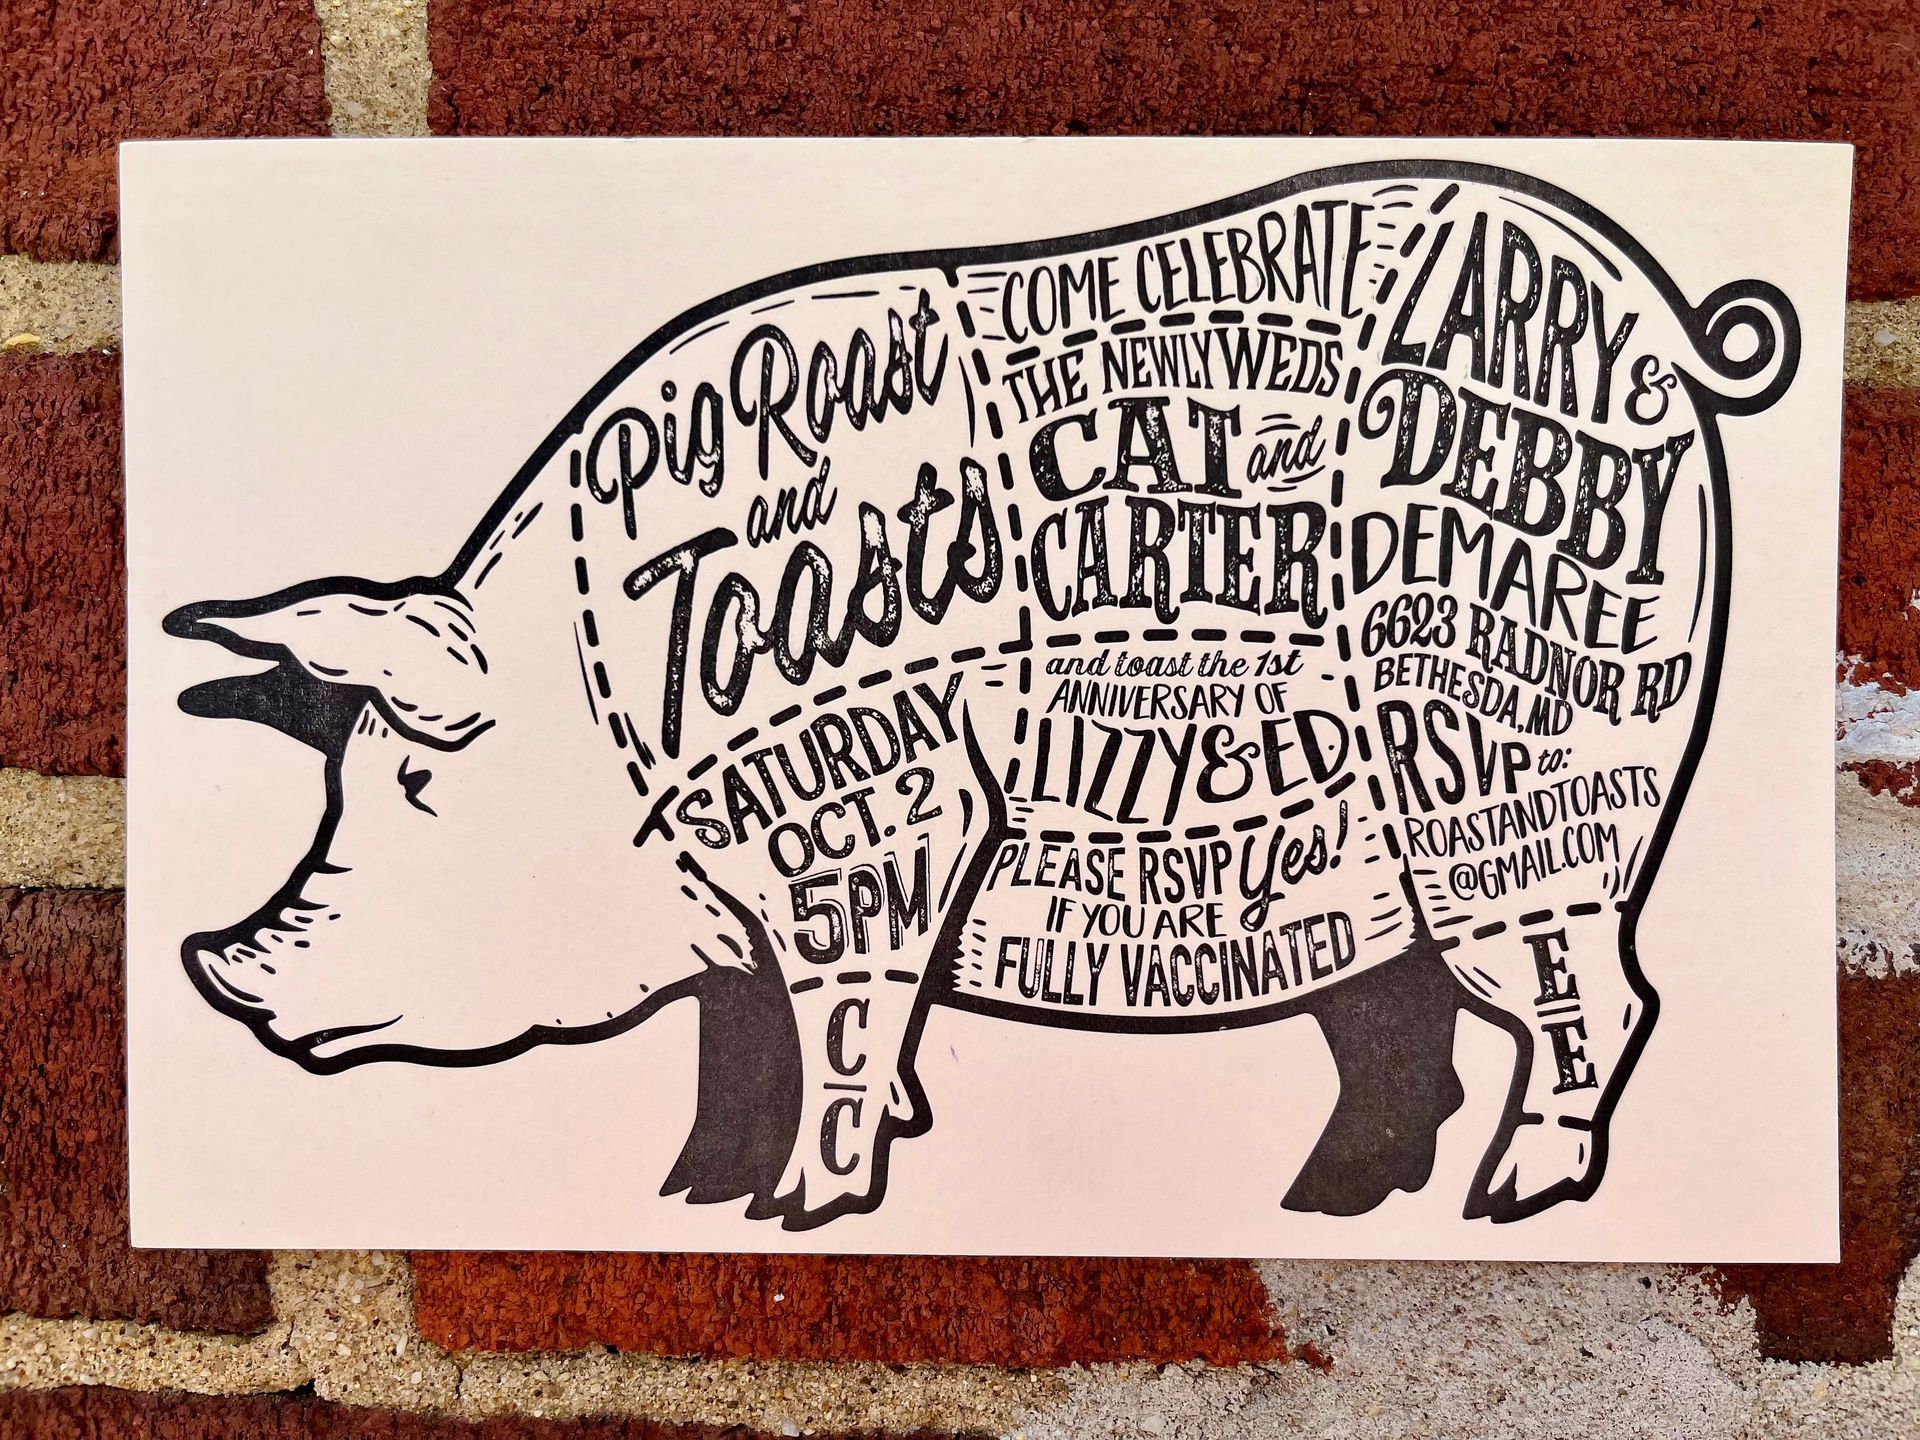 Pig Roast
and
Toasts
SATURDAY
OCT. 2
5PM
C
C
COME CELEBRATE
THE NEWLYWEDS
CAT and
CARTER
and toast the 1st
ANNIVERSARY OF
LIZZY & ED
PLEASE RSVP Yes!
IF YOU ARE
FULLY VACCINATED
LARRY &
DEBBY
DEMAREE
6623 RADNOR RD
BETHESDA, MD
RSVP to:
ROASTANDTOASTS
@GMAIL.COM
E
E